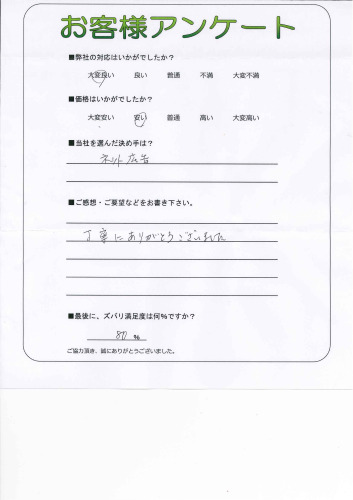 お客様アンケート
■弊社の対応はいかがでしたか？
大変良い 良い 普通 不満 大変不満
■価格はいかがでしたか？
大変安い 安い 普通 高い 大変高い
■当社を選んだ決め手は？
ネット広告
■ご感想・ご要望などをお書き下さい。
丁寧にありがとうございました
■最後に、ズバリ満足度は何%ですか？
80 %
ご協力頂き、誠にありがとうございました。